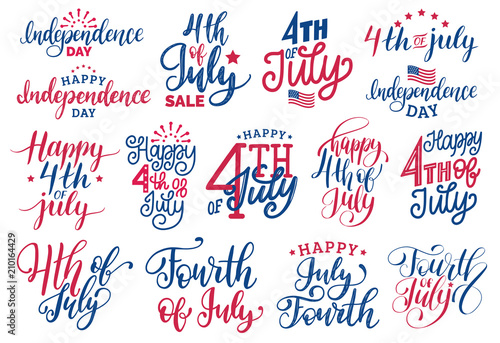 Independence
DAY
HAPPY
Independence
DAY
4th
of
July
SALE
4TH
OF
July
4th of july
Independence
DAY
Happy
4th
of
july
Happy
4th of
July
HAPPY
4TH
OF July
happy
4th of
July
Happy
4TH Of
July
4th of
July
Fourth
Of July
HAPPY
July
Fourth
Fourth
of
July
210164429